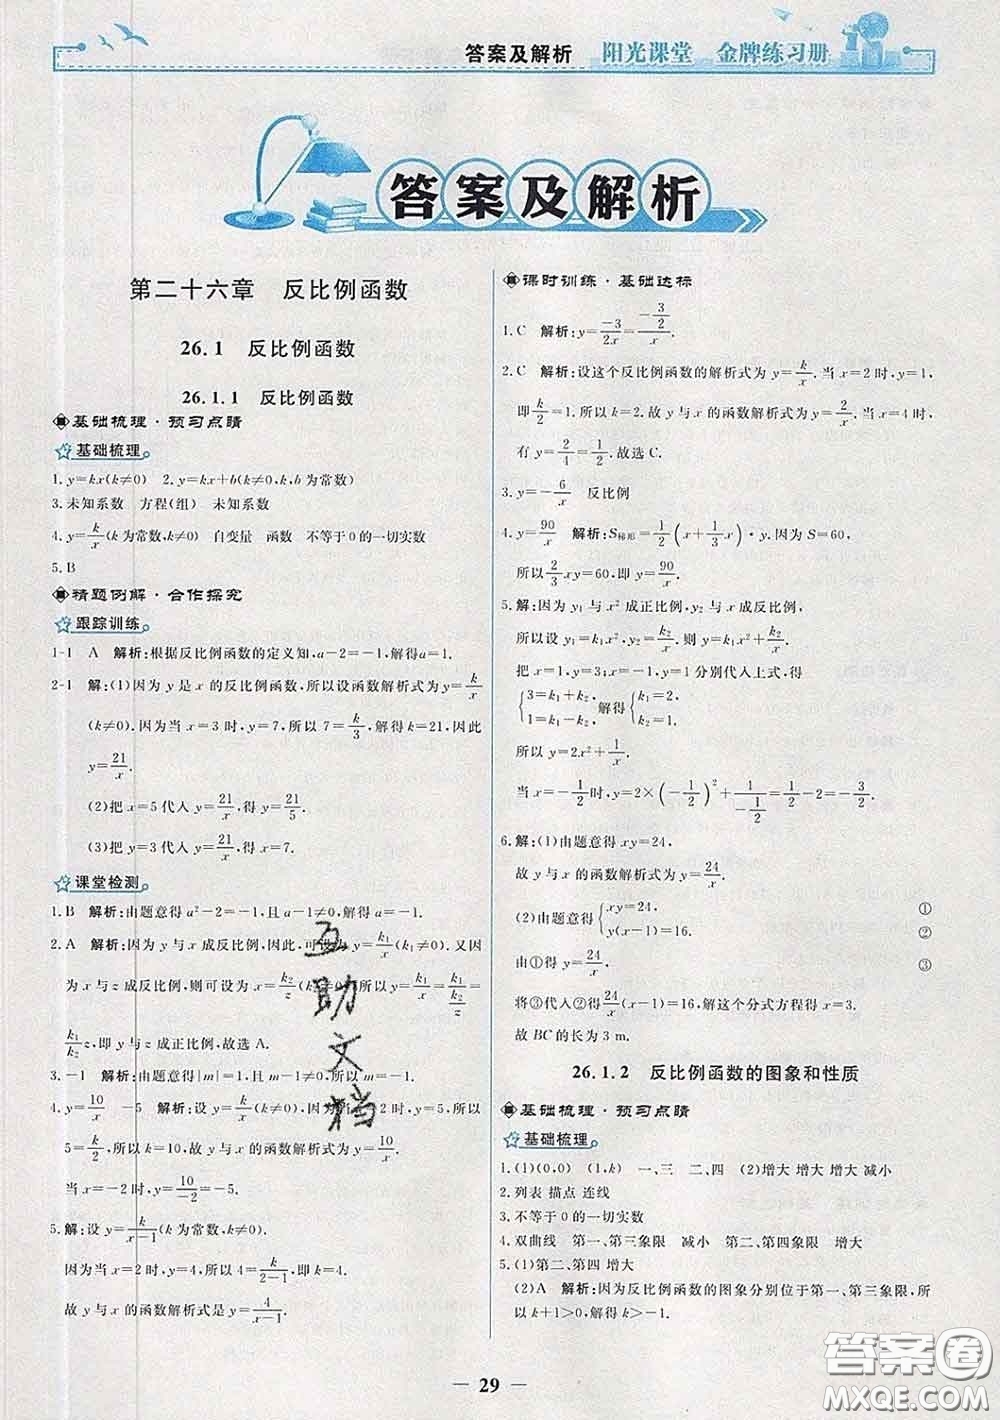 答案及解析 阳光课堂 金牌练习册
答案及解析
第二十六章 反比例函数
26.1 反比例函数
26.1.1 反比例函数
基础梳理·预习点睛
基础梳理
1.y=kx(k≠0) 2.y=kx+b(k≠0,k,b为常数)
3.未知系数 方程(组) 未知系数
4.y=k/x(k为常数,k≠0) 自变量 函数 不等于0的一切实数
5.B
精题例解·合作探究
跟踪训练
1-1 A 解析:根据反比例函数的定义知,a-2=-1,解得a=1.
2-1 解:(1)因为y是x的反比例函数,所以设函数解析式为y=k/x
(k≠0).因为当x=3时,y=7,所以7=k/3,解得k=21,因此
y=21/x.
(2)把x=5代入y=21/x,得y=21/5.
(3)把y=3代入y=21/x,得x=7.
课堂检测
1.B 解析:由题意得a²-2=-1,且a-1≠0,解得a=-1.
2.A 解析:因为y与x成反比例,因此,可设为y=k₁/x(k₁≠0).又因
为x与z成反比例,则可设为x=k₂/z(k₂≠0),所以y=k₁/x=k₁/(k₂/z)=
k₁/k₂ z,即y与z成正比例,故选A.
3.-1 解析:由题意得|m|=1,且m-1≠0,解得m=-1.
4.y=10/x -5 解析:设y=k/x(k≠0),因为当x=2时,y=5,所以
5=k/2,所以k=10,所以y与x的函数解析式为y=10/x.
当x=-2时,y=10/-2=-5.
5.解:设y=k/(x-1)(k为常数,k≠0).
因为当x=2时,y=4,所以4=k/(2-1),即k=4.
故y与x的函数解析式是y=4/(x-1).
课时训练·基础达标
1.C 解析:y=-3/2x=(-3/2)/x.
2.C 解析:设这个反比例函数的解析式为y=k/x.当x=2时,y=1,
即k/2=1.所以k=2.故y与x的函数解析式为y=2/x.当x=4时,
有y=2/4=1/2.故选C.
3.y=-6/x 反比例
4.y=90/x 解析:S梯形=1/2(x+1/3x)·y.因为S=60,
所以2/3xy=60,即y=90/x.
5.解:因为y₁与x²成正比例,y₂与x成反比例,
所以设y₁=k₁x²,y₂=k₂/x.则y=k₁x²+k₂/x.
把x=1,y=3;x=-1,y=1分别代入上式,得
{3=k₁+k₂, 1=k₁-k₂. 解得{k₁=2, k₂=1.
所以y=2x²+1/x.
当x=-1/2时,y=2×(-1/2)²+1/(-1/2)=1/2-2=-3/2.
6.解:(1)由题意得xy=24,
故y与x的函数解析式为y=24/x.
(2)由题意得{xy=24, ①
y(x-1)=16. ②
由①得y=24/x. ③
将③代入②得24/x(x-1)=16,解这个分式方程得x=3.
故BC的长为3 m.
26.1.2 反比例函数的图象和性质
基础梳理·预习点睛
基础梳理
1.(1)(0,0) (1,k) 一、三 二、四 (2)增大 增大 增大 减小
2.列表 描点 连线
3.不等于0的一切实数
4.双曲线 第一、第三象限 减小 第二、第四象限 增大
5.(1)第二、第四 增大
(2)A 解析:因为反比例函数的图象分别位于第一、第三象限,所
以k+1>0,解得k>-1.
互助文档
29
答案圈
MXQE.COM